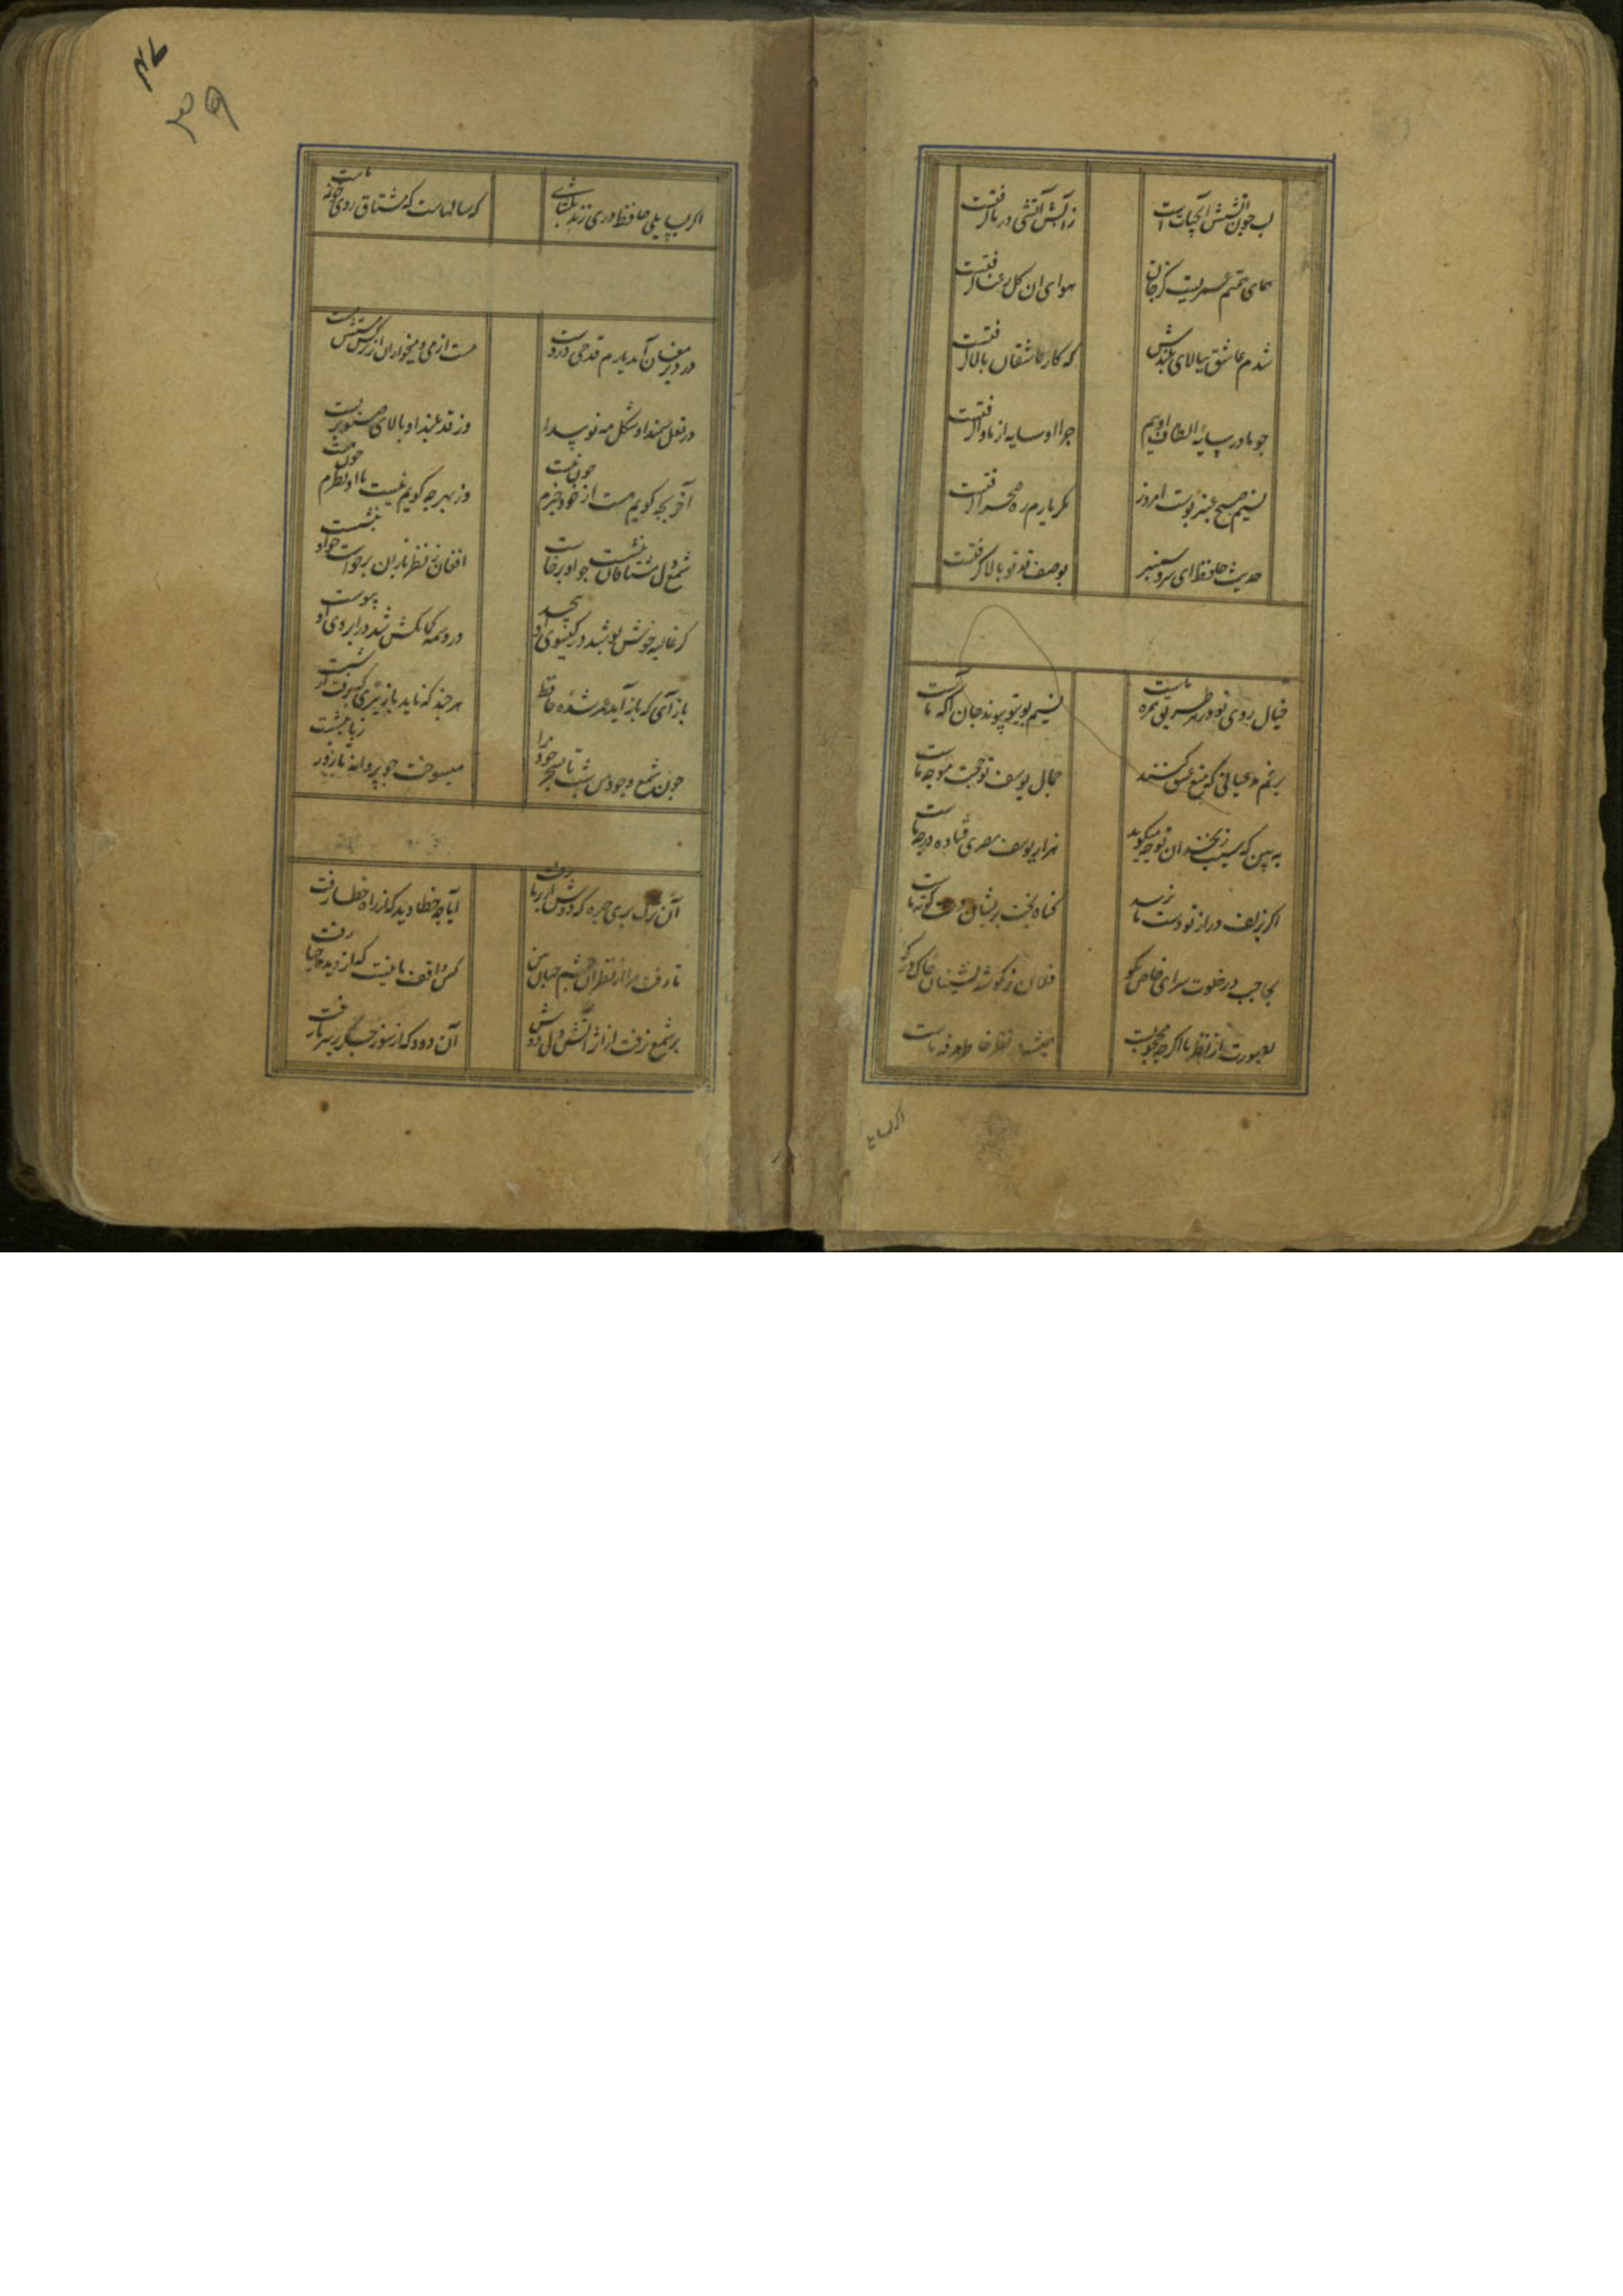 لب چون آتشش آب حیاتست
ز آبش آتشی در ما گرفتست
همای همتم عمریست کز جان
هوای آن گل رعنا گرفتست
شدم عاشق ببالای بلندش
که کار عاشقان بالا گرفتست
چو ما در سایهٔ الطاف اوییم
چرا او سایه از ما وا گرفتست
نسیم صبح عنبر بوست امروز
مگر یارم ره صحرا گرفتست
حدیث حافظ ای سرو سمنبر
بوصف قد تو بالا گرفتست
خیال روی تو در هر طریق همره ماست
نسیم بوی تو پیوند جان آگه ماست
برغم مدعیانی که منع عشق کنند
جمال یوسف تو حجت موجه ماست
به بین که سیب زنخدان تو چه میگوید
هزار یوسف مصری فتاده در چه ماست
اگر بزلف دراز تو دست ما نرسد
گناه بخت پریشان و دست کوته ماست
بحاجب در خلوت سرای خاص بگو
فلان ز گوشه نشینان خاک درگه
بصورت از نظر ما اگرچه محجوبست
همیشه در نظر خاطر مرفه ماست
اگر بسا
۳۹
اگر بسایلی حافظ دری زند بگشای
که سالهاست که مشتاق روی چون مه ماست
در دیر مغان آمد یارم قدحی در دست
مست از می و میخواران از نرگس مستش مست
در نعل سمند او شکل مه نو پیدا
وز قد بلند او بالای صنوبر پست
آخر بچه گویم هست از خود خبرم چون نیست
وز بهر چه گویم نیست با او نظرم چون هست
شمع دل مشتاقان بنشست چو او برخاست
افغان ز نظربازان برخاست چو او بنشست
گر غالیه خوش بو شد در گیسوی او پیچید
ور وسمه کمانکش شد در ابروی او پیوست
باز آی که باز آید عمر شدهٔ حافظ
هرچند که ناید باز تیری که برفت از شست
چون شمع وجود من شب تا بسحر خود را
میسوخت چو پروانه تا روز ز پا ننشست
آن ترک پری چهره که دوش از بر ما رفت
آیا چه خطا دید که از راه خطا رفت
تا رفت مرا از نظر آن چشم جهان بین
کس واقف ما نیست که از دیده چها رفت
بر شمع نرفت از اثر آتش دل دوش
آن دود که از سوز جگر بر سر ما رفت